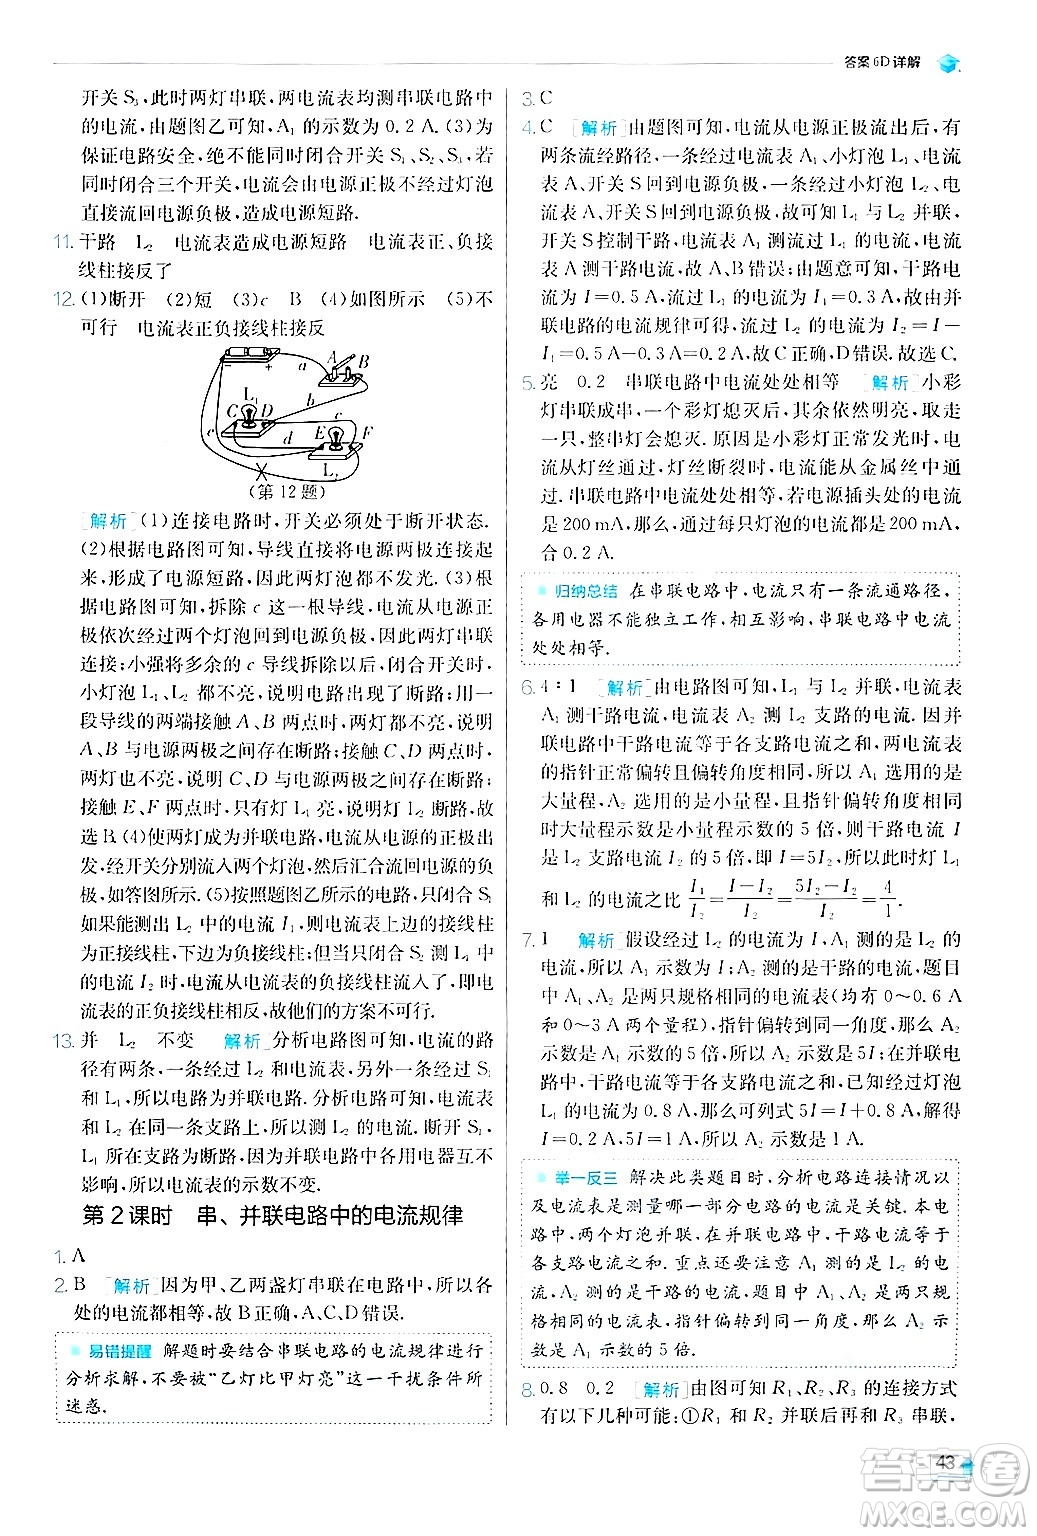 答案6D详解
开关S₃,此时两灯串联,两电流表均测串联电路中
的电流,由题图乙可知,A₁的示数为0.2 A.(3)为
保证电路安全,不能同时闭合开关S₁、S₂、S₃.若
同时闭合三个开关,电流会由电源正极不经过灯泡
直接流回电源负极,造成电源短路.
11. 干路 L₂ 电流表造成电源短路 电流表正、负接
线柱接反了
12. (1)断开 (2)短 (3)c B (4)如图所示 (5)不
可行 电流表正负接线柱接反
− + a A B
L₁ b
C D c
e d E F
L₂
(第12题)
[解析](1)连接电路时,开关必须处于断开状态.
(2)根据电路图可知,导线直接将电源两极连接起
来,形成了电源短路,会使两灯泡都不发光.(3)根
据电路图可知,拆除c这一根导线,电流从电源正
极依次经过两个灯泡回到电源负极,此时两灯串联
连接;小强将多余的c导线拆除以后,闭合开关,两
小灯泡L₁、L₂都不亮,说明电路出现了断路.用一
段导线的两端接触A、B两点时,两灯都不亮,说明
A、B与电源两极之间存在断路;接触C、D两点时,
两灯也不亮,说明C、D与电源两极之间存在断路;
接触E、F两点时,只有灯L₁亮,说明L₂断路,故
选B.(4)使两灯成为并联电路,电流从电源的正极出
发,经开关分别流入两个灯泡,然后汇合流回电源的负
极,如答图所示.(5)按照题图乙所示的电路,只闭合S₁
如果能测出L₂中的电流I₁,则电流表上边的接线柱
为正接线柱,下边为负接线柱;但当只闭合S₂测L₁中
的电流I₂时,电流从电流表的负接线柱流入,此时电
流表的正负接线柱相反,故他们的方案不可行.
13. 并 L₂ 不变 [解析]分析电路图可知,电流的路
径有两条,一条经过L₂和电流表,另外一条经过S₁
和L₁,所以电路为并联电路.分析电路可知,电流表
和L₂在同一条支路中,所以测L₂的电流.断开S₁,
L₁所在支路为断路,并联电路中各用电器互不
影响,所以电流表的示数不变.
第2课时 串、并联电路中的电流规律
1. A
2. B [解析]因为甲、乙两盏灯串联在电路中,所以各
处的电流都相等,故B正确,A、C、D错误.
易错提醒 解题时要结合串联电路的电流规律进行
分析求解,不要被“乙灯比甲灯亮”这一干扰条件所
迷惑.
3. C
4. C [解析]由题图可知,电流从电源正极流出后,有
两条流经路径,一条经过电流表A₁、小灯泡L₁、电流
表A、开关S回到电源负极,一条经过小灯泡L₂、电
流表A、开关S回到电源负极,故可知L₁与L₂并联,
开关S控制干路,电流表A₁测流过L₁的电流,电流
表A测干路电流,故A、B错误;由题意可知,干路电
流为I=0.5 A,流过L₁的电流为I₁=0.3 A,由并
联电路的电流规律可得,流过L₂的电流为I₂=I−
I₁=0.5 A−0.3 A=0.2 A,故C正确,D错误.故选C.
5. 亮 0.2 串联电路中电流处处相等 [解析]小彩
灯串联成串,一个彩灯熄灭后,其余依然明亮,取走
一只,整串灯会熄灭.原因是小彩灯正常发光时,电
流从灯丝通过,灯丝断裂时,电流从金属丝中流
过.串联电路中电流处处相等,若电源插头处的电流
是200 mA,那么,通过每只灯泡的电流都是200 mA,
合0.2 A.
归纳总结 在串联电路中,电流只有一条流通路径,
各用电器不能独立工作,相互影响,串联电路中电流
处处相等.
6. 4∶1 [解析]由电路图可知,L₁与L₂并联,电流表
A₁测干路电流,电流表A₂测L₂支路的电流.因并
联电路中干路电流等于各支路电流之和,且两电流表
的指针正常偏转且偏转角度相同,所以A₁选用的是
大量程,A₂选用的是小量程,且指针偏转角度相同
时大量程示数是小量程示数的5倍,所以,干路电流I
是L₂支路电流I₂的5倍,即I=5I₂,所以,灯泡L₁
和L₂的电流之比I₁/I₂=(I−I₂)/I₂=(5I₂−I₂)/I₂=4/1.
7. 1 [解析]假设经过L₂的电流为I,A₁测的是L₂的
电流,因此A₁示数为I;A₂测的是干路的电流,题目
中A₁和A₂是两只规格相同的电流表(均有0～0.6 A
和0～3 A两个量程),指针偏转到同一角度,那么A₂
示数为A₁示数的5倍,所以A₂示数是5I;在并联电
路中,干路电流是各支路电流之和,已知经过灯泡
L₁的电流为0.8 A,那么可列式5I=I+0.8 A,解得
I=0.2 A,5I=1 A,所以A₂示数是1 A.
举一反三 解决此类题目时,分析电路连接情况以
及电流表是测量哪一部分电路的电流是关键.本电
路中,两只灯泡并联,在并联电路中,干路电流等于
各支路电流之和.重点还要注意A₁测的是经过L₂
的电流,A₂测的是干路的电流,并且A₁、A₂是两只规
格相同的电流表,指针偏转到同一角度,那么A₂示
数是A₁示数的5倍.
8. 0.8 0.2 [解析]由图可知R₁、R₂、R₃的连接方式
有以下几种可能:①R₁和R₂并联后再和R₃串联,
43
答案圈
MXQE.COM